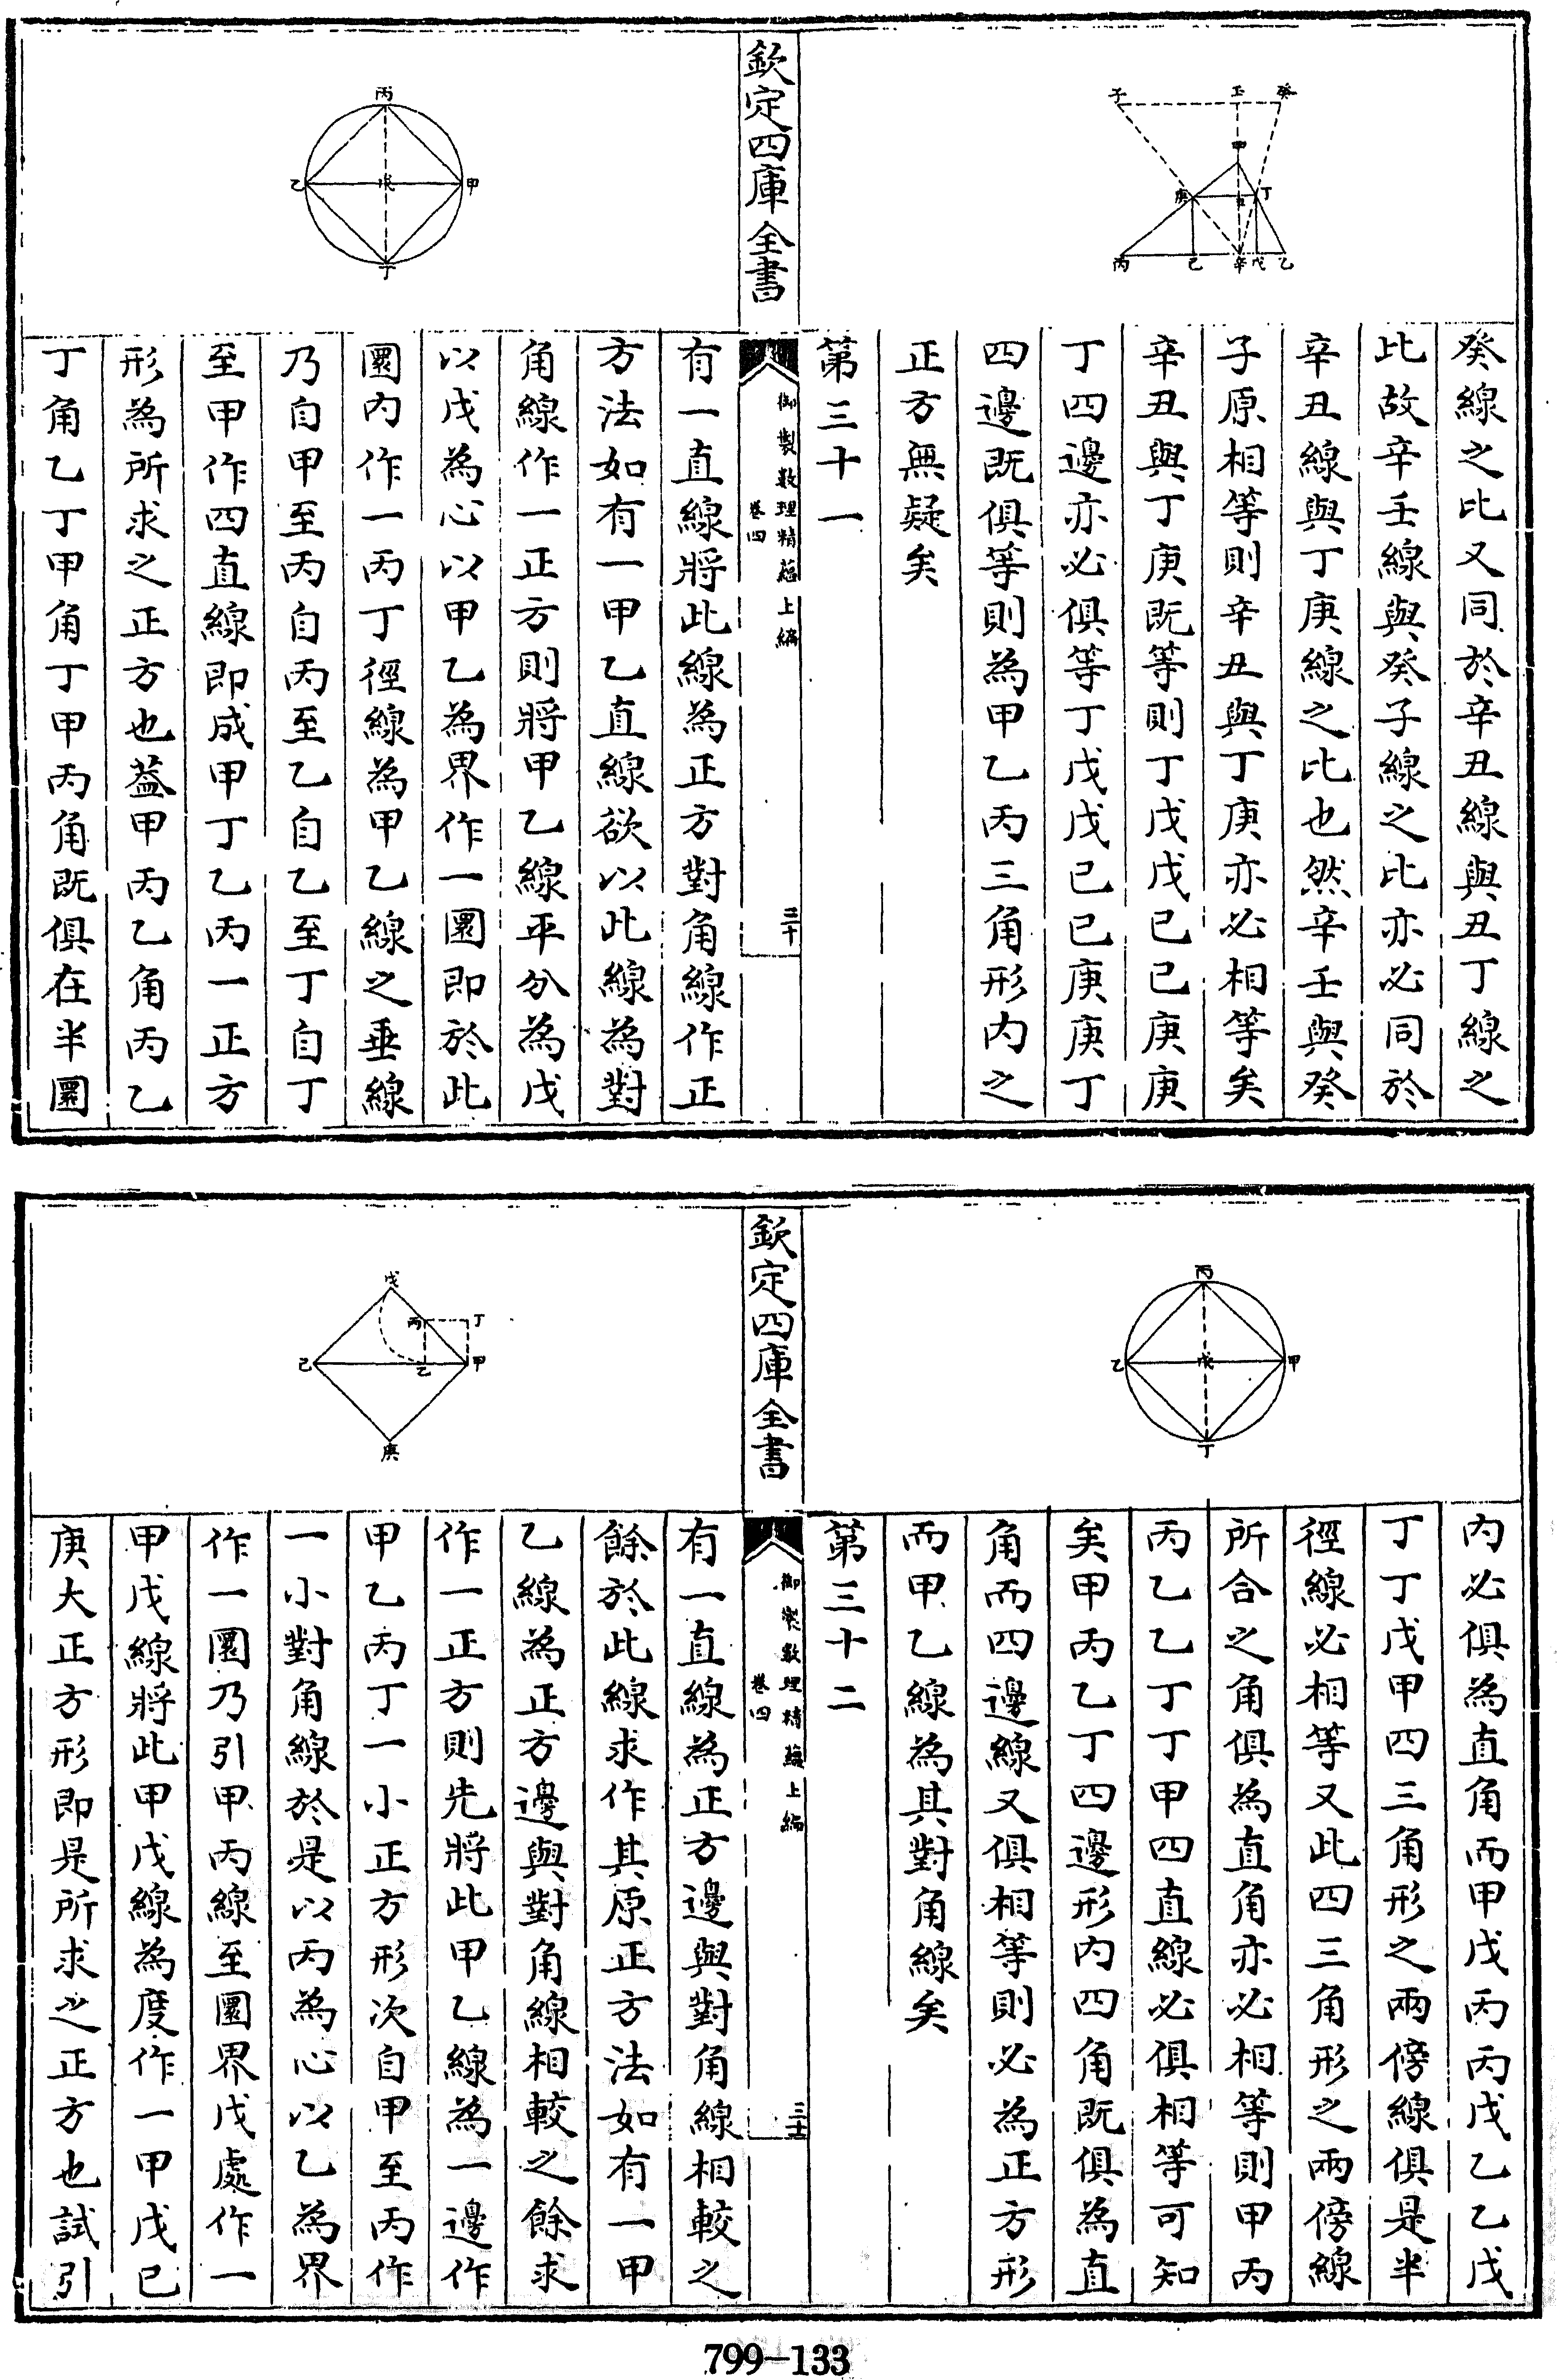 癸線之比又同於辛丑線與丑丁線之
比故辛壬線與癸子線之比亦必同於
辛丑線與丁庚線之比也然辛壬與癸
子原相等則辛丑與丁庚亦必相等矣
辛丑與丁庚既等則丁戊戊已已庚庚
丁四邊亦必俱等丁戊戊已已庚庚丁
四邊既俱等則為甲乙丙三角形内之
正方無疑矣
第三十一
子 壬 癸
甲
庚 丑 丁
丙 己 辛 戊 乙
欽定四庫全書
御製數理精蘊上編
卷四
三十
有一直線將此線為正方對角線作正
方法如有一甲乙直線欲以此線為對
角線作一正方則將甲乙線平分為戊
以戊為心以甲乙為界作一圜即於此
圜内作一丙丁徑線為甲乙線之垂線
乃自甲至丙自丙至乙自乙至丁自丁
至甲作四直線即成甲丁乙丙一正方
形為所求之正方也葢甲丙乙角丙乙
丁角乙丁甲角丁甲丙角既俱在半圜
丙
乙 戊 甲
丁
内必俱為直角而甲戊丙丙戊乙乙戊
丁丁戊甲四三角形之兩傍線俱是半
徑線必相等又此四三角形之兩傍線
所合之角俱為直角亦必相等則甲丙
丙乙乙丁丁甲四直線必俱相等可知
矣甲丙乙丁四邊形内四角既俱為直
角而四邊線又俱相等則必為正方形
而甲乙線為其對角線矣
第三十二
丙
乙 戊 甲
丁
欽定四庫全書
御製數理精蘊上編
卷四
三十一
有一直線為正方邊與對角線相較之
餘於此線求作其原正方法如有一甲
乙線為正方邊與對角線相較之餘求
作一正方則先將此甲乙線為一邊作
甲乙丙丁一小正方形次自甲至丙作
一小對角線於是以丙為心以乙為界
作一圜乃引甲丙線至圜界戊處作一
甲戊線將此甲戊線為度作一甲戊已
庚大正方形即是所求之正方也試引
戊
丙 丁
己 乙 甲
庚
799-133